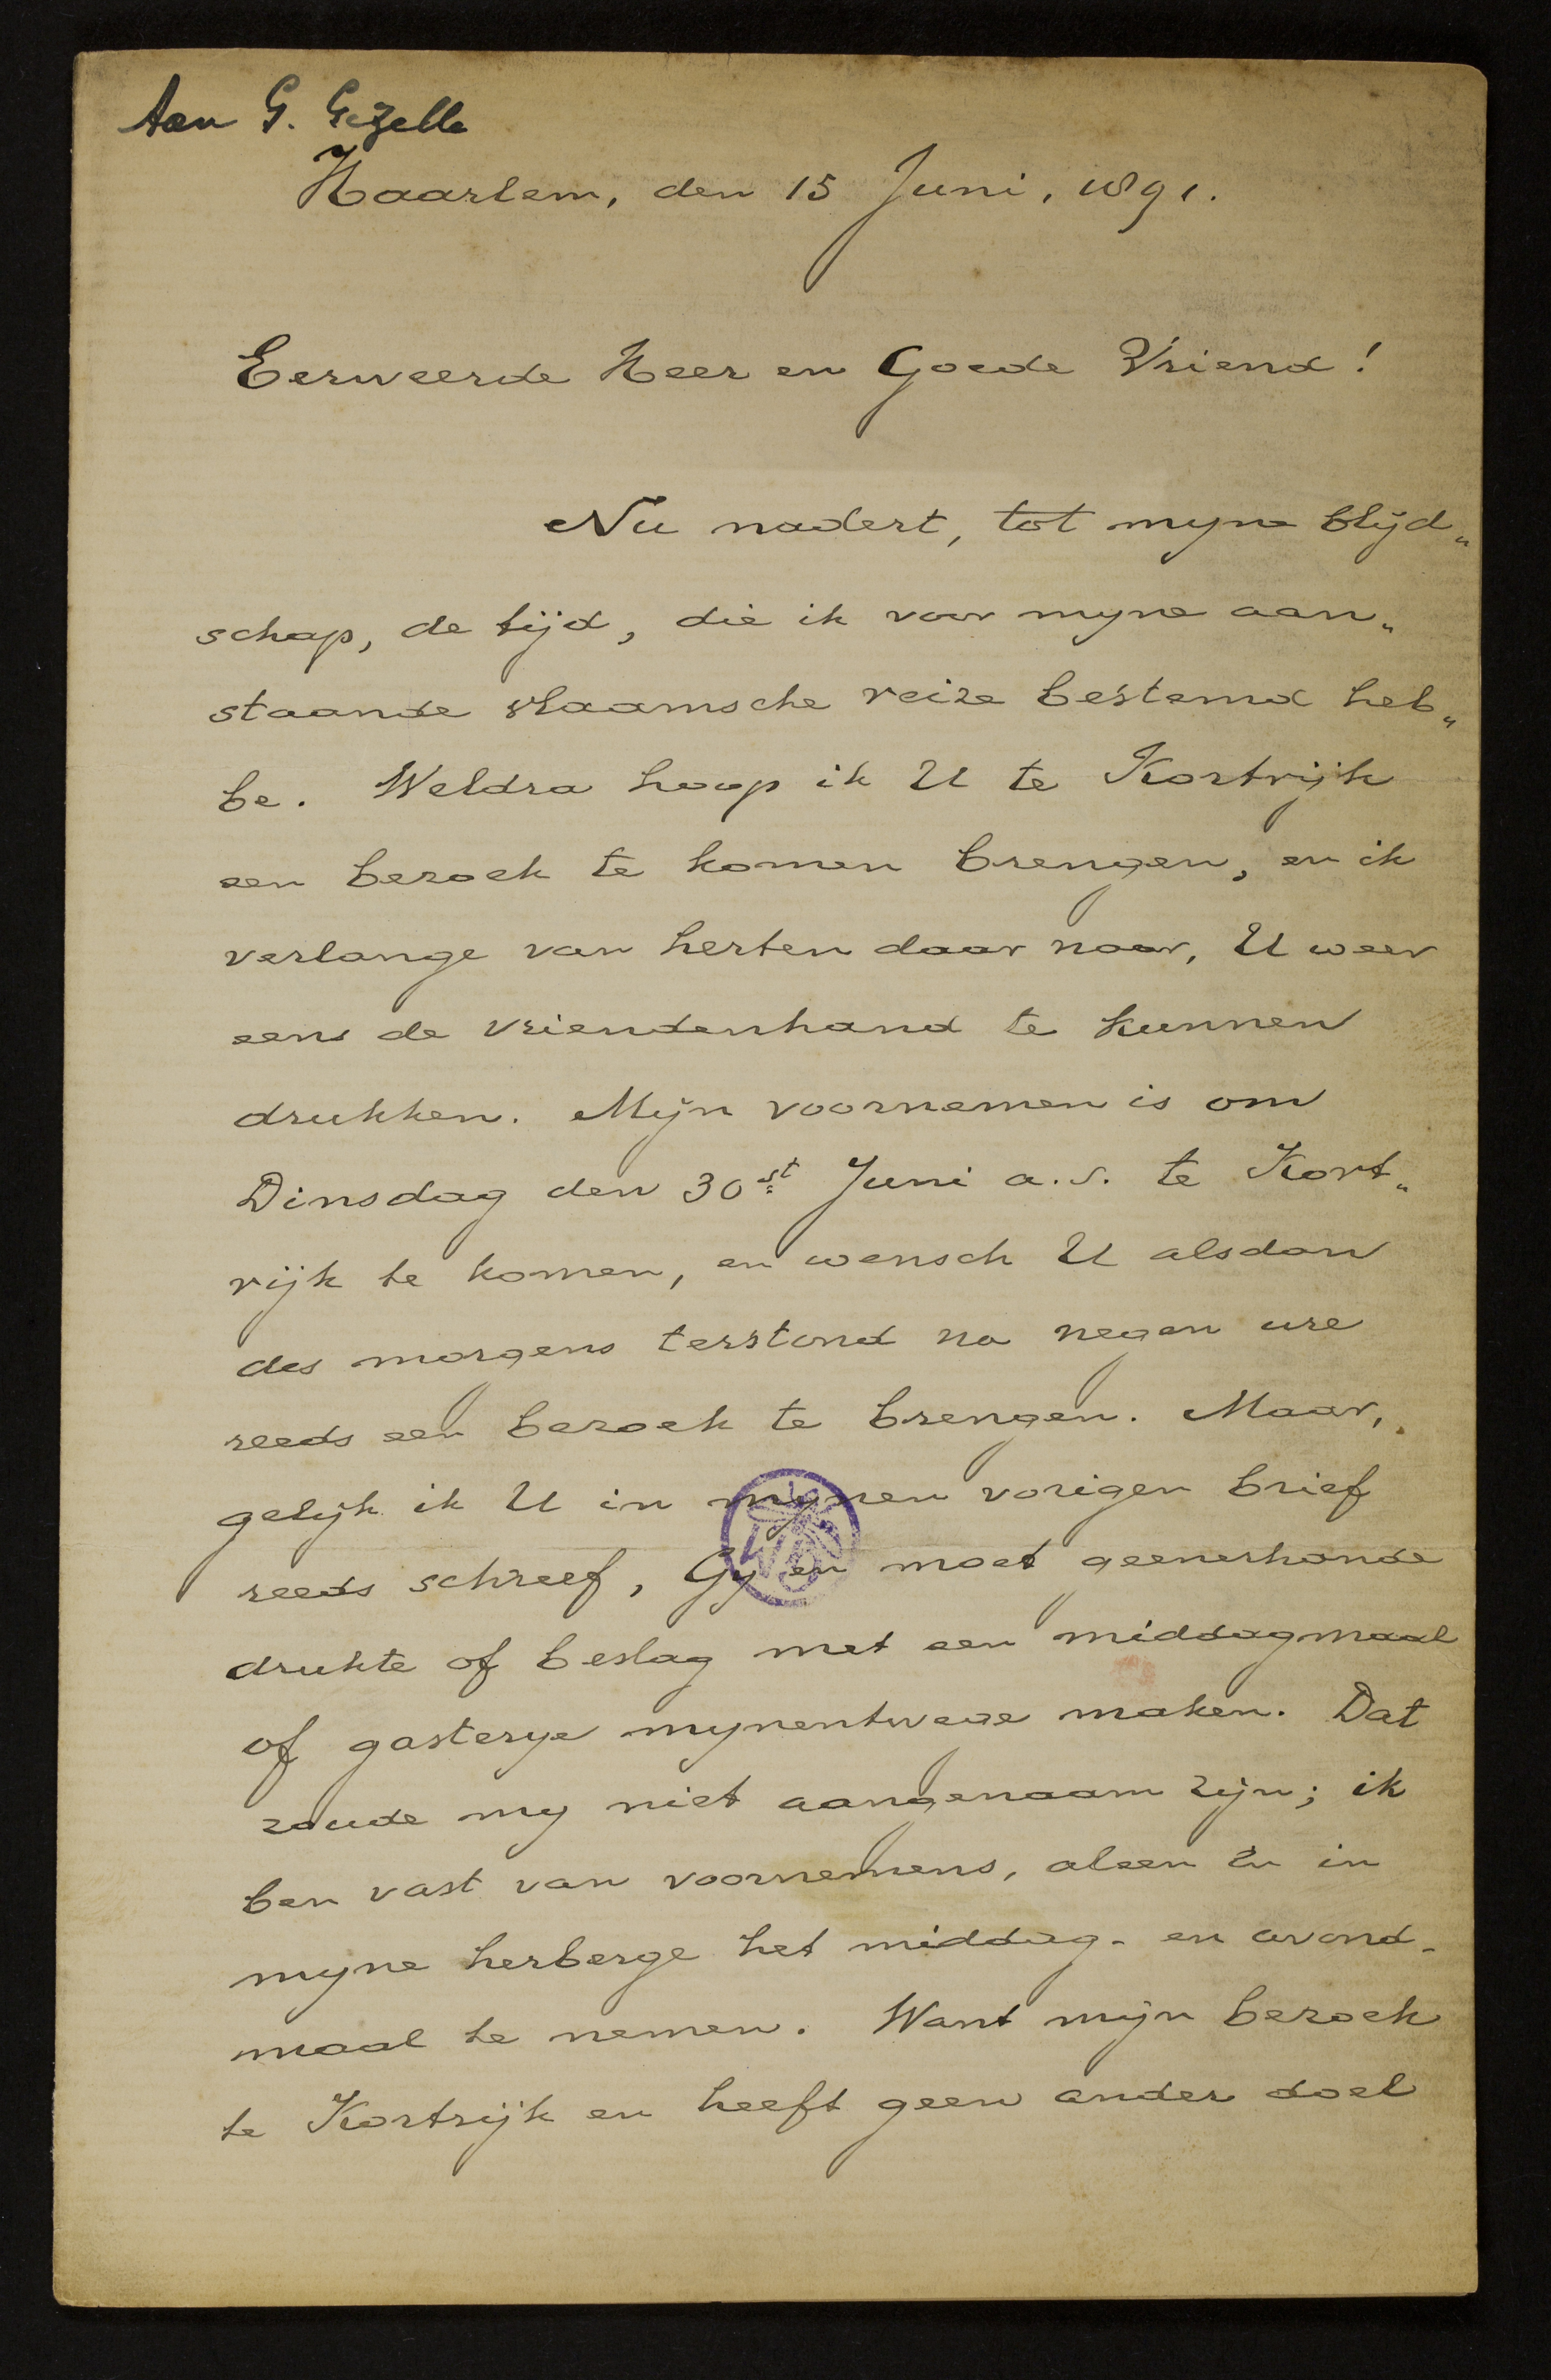 Aan G. Gezelle
Haarlem, den 15 Juni, 1891.
Eerweerde Heer en Goede Vriend!
Nu nadert, tot myne blijd„
schap, de tijd, die ik voor myne aan„
staande vlaamsche reize bestemd heb„
be. Weldra hoop ik U te Kortrijk
een bezoek te komen brengen, en ik
verlange van herten daar naar, U weer
eens de vriendenhand te kunnen
drukken. Mijn voornemen is om
Dinsdag den 30st Juni a.s. te Kort„
rijk te komen, en wensch U alsdan
des morgens terstond na negen ure
reeds een bezoek te brengen. Maar,
gelijk ik U in mynen vorigen brief
reeds schreef, Gy en moet geenerhande
drukte of beslag met een middagmaal
of gasterye mynentwege maken. Dat
zoude my niet aangenaam zijn; ik
ben vast van voornemens, aleen in
myne herberge het middag- en avond-
maal te nemen. Want mijn bezoek
te Kortrijk en heeft geen ander doel